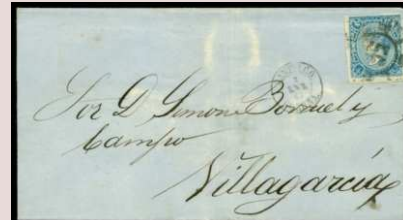 Sor D. Simon Borruel y
Campo
Villagarcía